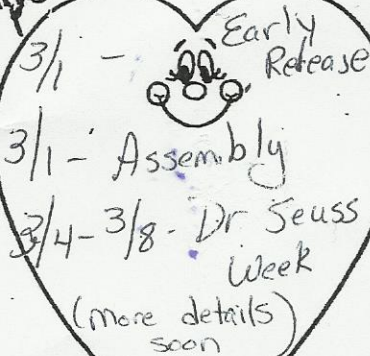 3/1 - Early
Release
3/1 - Assembly
3/4 - 3/8 - Dr Seuss
Week
(more details)
soon